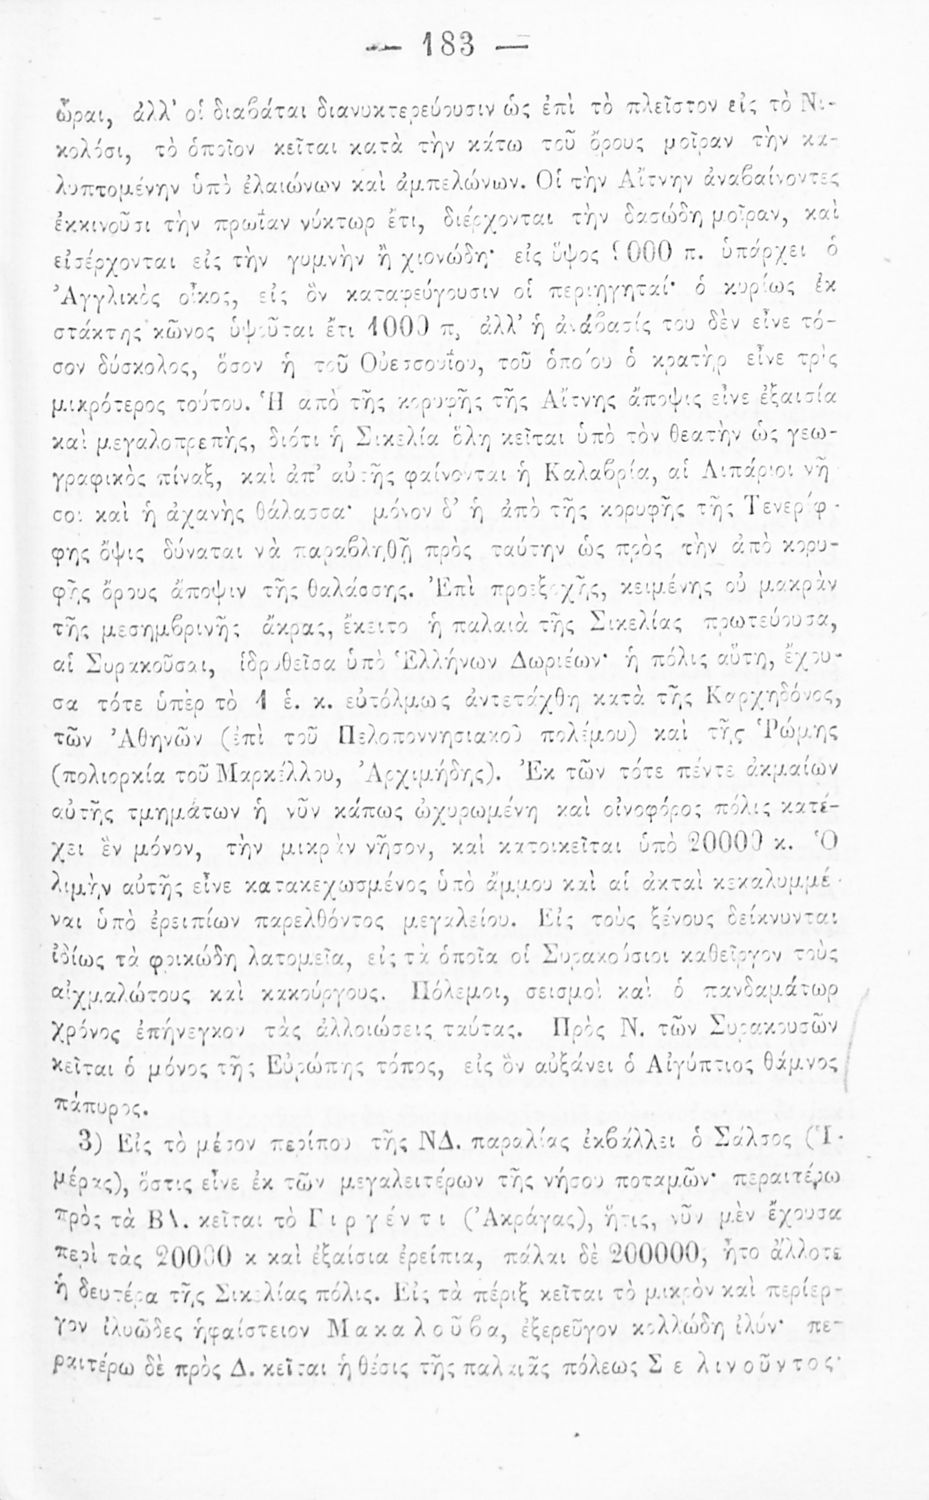 — 183 —
ὧραι, ἀλλ' οἱ διαβάται διανυκτερεύουσιν ὡς ἐπὶ τὸ πλεῖστον εἰς τὸ Νι-
κολόσι, τὸ ὁποῖον κεῖται κατὰ τὴν κάτω τοῦ ὄρους μοῖραν τὴν κα-
λυπτομένην ὑπὸ ἐλαιώνων καὶ ἀμπελώνων. Οἱ τὴν Αἴτνην ἀναβαίνοντες
ἐκκινοῦσι τὴν πρωΐαν νύκτωρ ἔτι, διέρχονται τὴν δασώδη μοῖραν, καὶ
εἰσέρχονται εἰς τὴν γυμνὴν ἢ χιονώδη· εἰς ὕψος π. ὑπάρχει ὁ
Ἀγγλικὸς οἶκος, εἰς ὃν καταφεύγουσιν οἱ περιηγηταί· ὁ κυρίως ἐκ
στάκτης κῶνος ὑψοῦται ἔτι 1000 π, ἀλλ' ἡ ἀνάβασίς του δὲν εἶνε τό-
σον δύσκολος, ὅσον ἡ τοῦ Οὐεσσουΐου, τοῦ ὁποίου ὁ κρατὴρ εἶνε τρὶς
μικρότερος τούτου. Ἡ ἀπὸ τῆς κορυφῆς τῆς Αἴτνης ἄποψις εἶνε ἐξαισία
καὶ μεγαλοπρεπὴς, διότι ἡ Σικελία ὅλη κεῖται ὑπὸ τὸν θεατὴν ὡς γεω-
γραφικὸς πίναξ, καὶ ἀπ' αὐτῆς φαίνονται ἡ Καλαβρία, αἱ Λιπάριοι νῆ-
σοι καὶ ἡ ἀχανὴς θάλασσα· μόνον δ' ἡ ἀπὸ τῆς κορυφῆς τῆς Τενερίφ-
φης ὄψις δύναται νὰ παραβληθῇ πρὸς ταύτην ὡς πρὸς τὴν ἀπὸ κορυ-
φῆς ὄρους ἄποψιν τῆς θαλάσσης. Ἐπὶ προεξοχῆς, κειμένης οὐ μακρὰν
τῆς μεσημβρινῆς ἄκρας, ἔκειτο ἡ παλαιὰ τῆς Σικελίας πρωτεύουσα,
αἱ Συρακοῦσαι, ἱδρυθεῖσα ὑπὸ Ἑλλήνων Δωριέων· ἡ πόλις αὕτη, ἔχου-
σα τότε ὑπὲρ τὸ 1 ἑ. κ. εὐτόλμως ἀντετάχθη κατὰ τῆς Καρχηδόνος,
τῶν Ἀθηνῶν (ἐπὶ τοῦ Πελοποννησιακοῦ πολέμου) καὶ τῆς Ῥώμης
(πολιορκία τοῦ Μαρκέλλου, Ἀρχιμήδης). Ἐκ τῶν τότε πέντε ἀκμαίων
αὐτῆς τμημάτων ἡ νῦν κάπως ὠχυρωμένη καὶ οἰνοφόρος πόλις κατέ-
χει ἓν μόνον, τὴν μικρὰν νῆσον, καὶ κατοικεῖται ὑπὸ 20000 κ. Ὁ
λιμὴν αὐτῆς εἶνε κατακεχωσμένος ὑπὸ ἄμμου καὶ αἱ ἀκταὶ κεκαλυμμέ-
ναι ὑπὸ ἐρειπίων παρελθόντος μεγαλείου. Εἰς τοὺς ξένους δείκνυνται
ἰδίως τὰ φρικώδη λατομεῖα, εἰς τὰ ὁποῖα οἱ Συρακούσιοι καθεῖργον τοὺς
αἰχμαλώτους καὶ κακούργους. Πόλεμοι, σεισμοὶ καὶ ὁ πανδαμάτωρ
χρόνος ἐπήνεγκον τὰς ἀλλοιώσεις ταύτας. Πρὸς Ν. τῶν Συρακουσῶν
κεῖται ὁ μόνος τῆς Εὐρώπης τόπος, εἰς ὃν αὐξάνει ὁ Αἰγύπτιος θάμνος
πάπυρος.
3) Εἰς τὸ μέσον περίπου τῆς ΝΔ. παραλίας ἐκβάλλει ὁ Σάλσος (Ἱ-
μέρας), ὅστις εἶνε ἐκ τῶν μεγαλειτέρων τῆς νήσου ποταμῶν· περαιτέρω
πρὸς τὰ ΒΔ. κεῖται τὸ Γιργέντι (Ἀκράγας), ἥτις, νῦν μὲν ἔχουσα
περὶ τὰς 20000 κ καὶ ἐξαίσια ἐρείπια, πάλαι δὲ 200000, ἦτο ἄλλοτε
ἡ δευτέρα τῆς Σικελίας πόλις. Εἰς τὰ πέριξ κεῖται τὸ μικρὸν καὶ περίερ-
γον ἰλυῶδες ἡφαίστειον Μακαλοῦβα, ἐξερεῦγον κολλώδη ἰλύν· πε-
ραιτέρω δὲ πρὸς Δ. κεῖται ἡ θέσις τῆς παλαιᾶς πόλεως Σελινοῦντος·